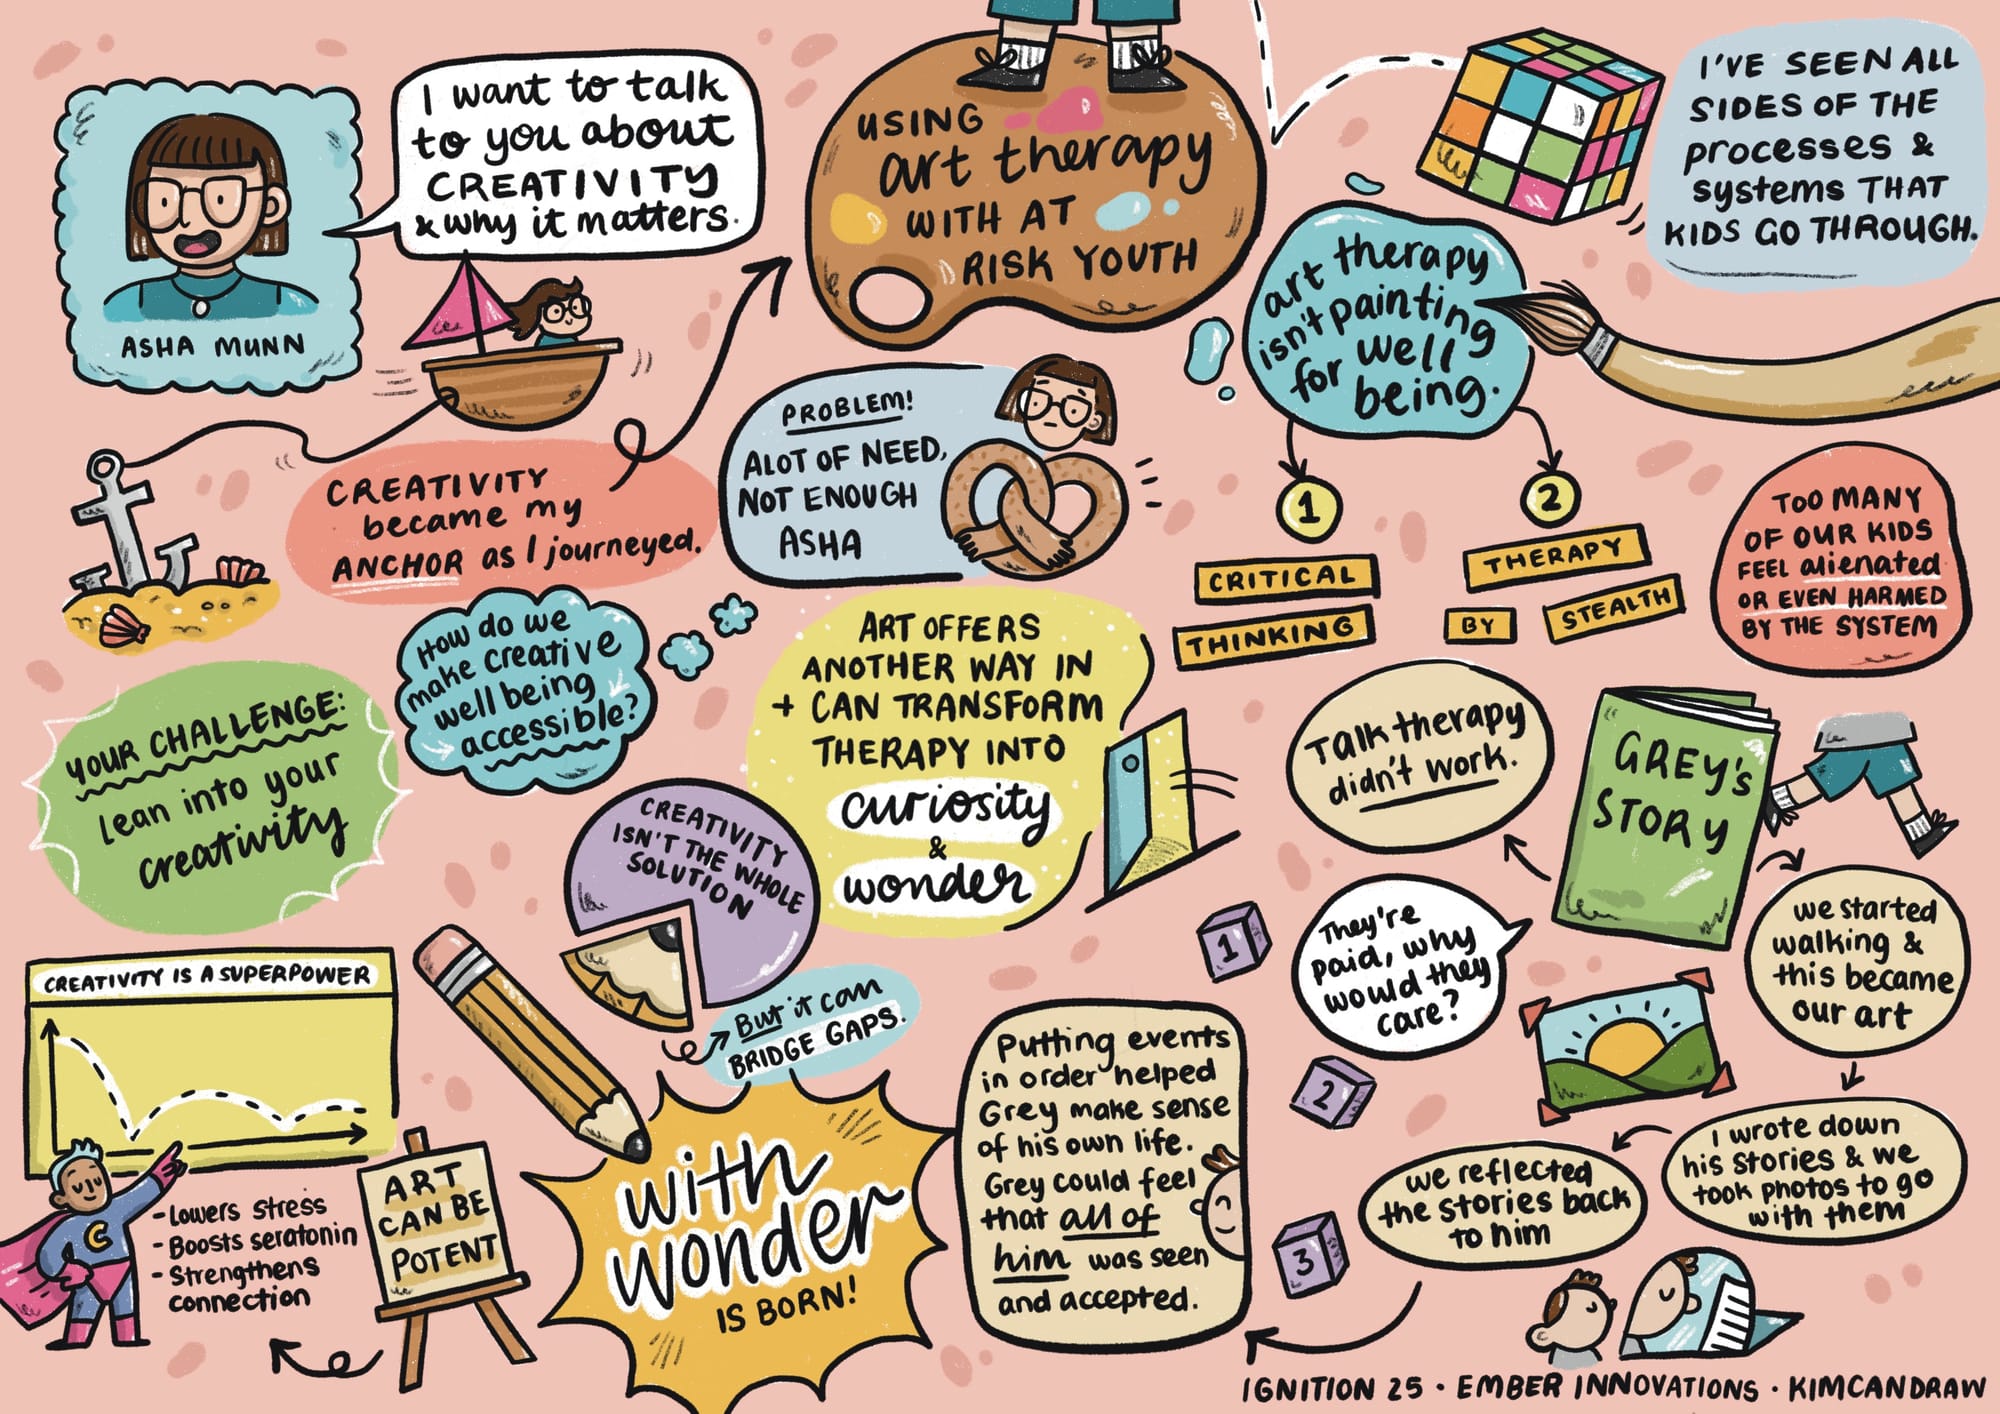 I want to talk
to you about
CREATIVITY
& why it matters.
ASHA MUNN
CREATIVITY
became my
ANCHOR as I journeyed.
USING
art therapy
WITH AT
RISK YOUTH
I'VE SEEN ALL
SIDES OF THE
processes &
systems THAT
KIDS GO THROUGH.
art therapy
isn't painting
for well
being.
1
CRITICAL
THINKING
2
THERAPY
BY
STEALTH
TOO MANY
OF OUR KIDS
FEEL alienated
OR EVEN HARMED
BY THE SYSTEM
GREY'S
STORY
Talk therapy
didn't work.
They're
paid, why
would they
care?
we started
walking &
this became
our art
I wrote down
his stories & we
took photos to go
with them
we reflected
the stories back
to him
1
2
3
Putting events
in order helped
Grey make sense
of his own life.
Grey could feel
that all of
him was seen
and accepted.
PROBLEM!
ALOT OF NEED,
NOT ENOUGH
ASHA
ART OFFERS
ANOTHER WAY IN
+ CAN TRANSFORM
THERAPY INTO
curiosity
&
wonder
How do we
make creative
well being
accessible?
CREATIVITY
ISN'T THE WHOLE
SOLUTION
But it can
BRIDGE GAPS.
with
wonder
IS BORN!
ART
CAN BE
POTENT
CREATIVITY IS A SUPERPOWER
C
- Lowers stress
- Boosts seratonin
- Strengthens
connection
YOUR CHALLENGE:
lean into your
creativity
IGNITION 25 · EMBER INNOVATIONS · KIMCANDRAW